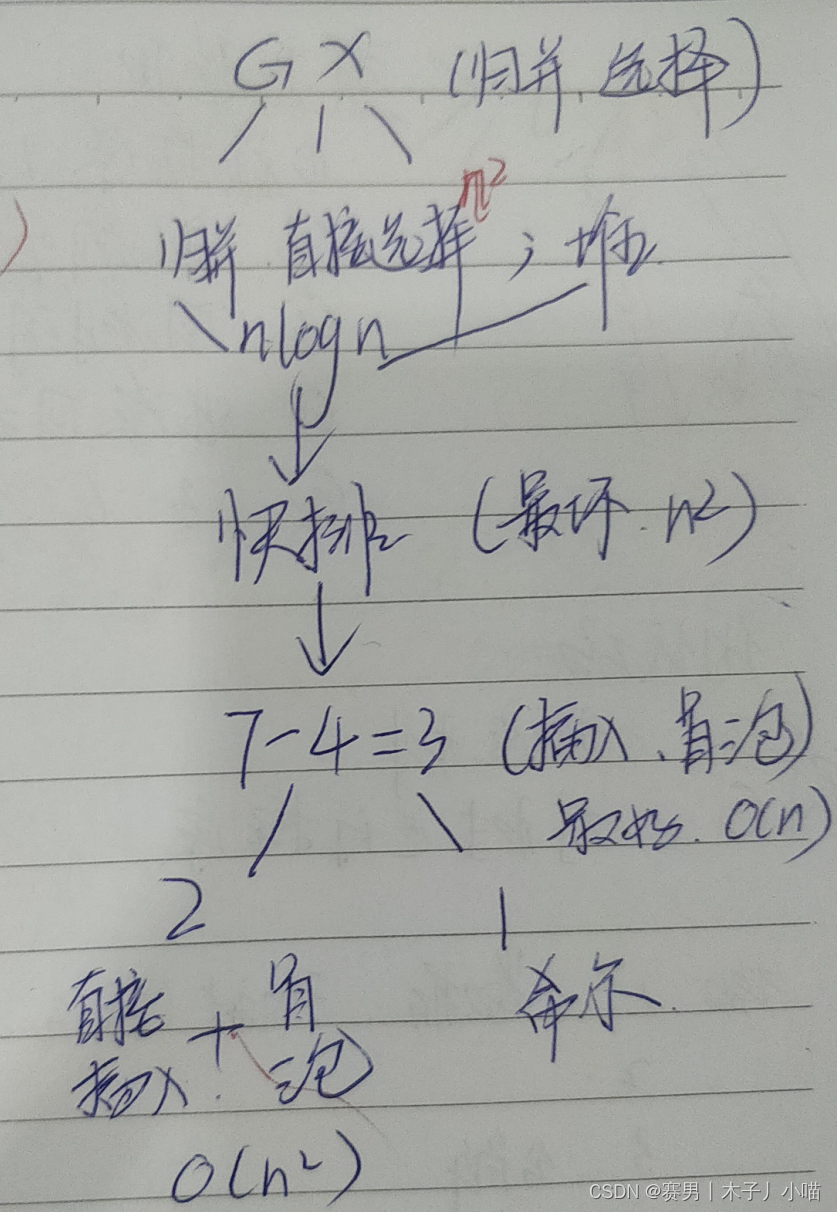 GX (归并、选择)
归并 直接选择 n² ; 堆
nlogn
快排 (最坏 . n²)
7-4=3 (插入、冒泡)
最好. O(n)
2 1
直接插入 + 冒泡 希尔.
O(n²)
CSDN @赛男丨木子丿小喵